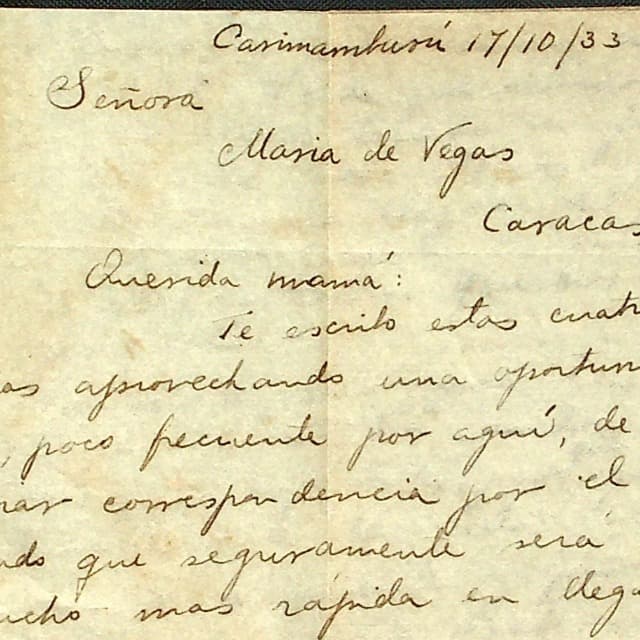 Carimamburú 17/10/33
Señora
Maria de Vegas
Caracas
Querida mamá:
Te escribo estas cuatr
as aprovechando una oportun
, poco frecuente por aquí, de
nar correspondencia por el
ndo que seguramente será
ucho mas rápida en llega